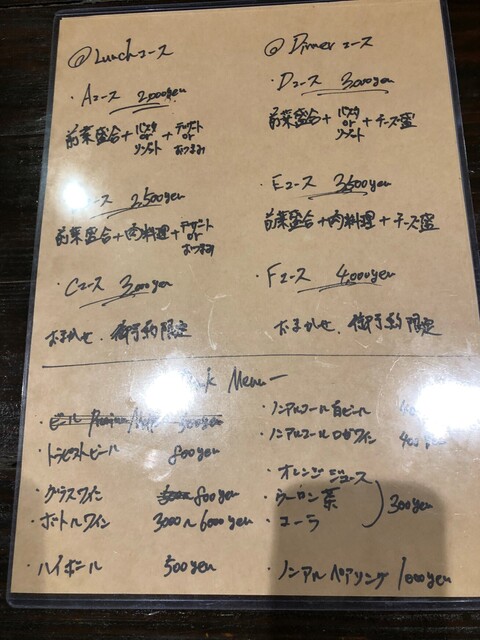 @ Lunch コース
・Aコース 2,000yen
前菜盛合+パスタ or リゾット+デザート or おつまみ
コース 2,500yen
前菜盛合+肉料理+デザート or おつまみ
・Cコース 3,000yen
おまかせ、御予約限定
@ Dinner コース
・Dコース 3,000yen
前菜盛合+パスタ or リゾット+チーズ盛
・Eコース 3,500yen
前菜盛合+肉料理+チーズ盛
・Fコース 4,000yen
おまかせ、御予約限定
Menu
・ビール Premium 500yen
・トラピストビール 800yen
・グラスワイン 800yen
・ボトルワイン 3000~6000yen
・ハイボール 500yen
・ノンアルコール白ビール
・ノンアルコールロゼワイン 400yen
・オレンジジュース
・ウーロン茶 300yen
・コーラ
・ノンアルペアリング 1000yen